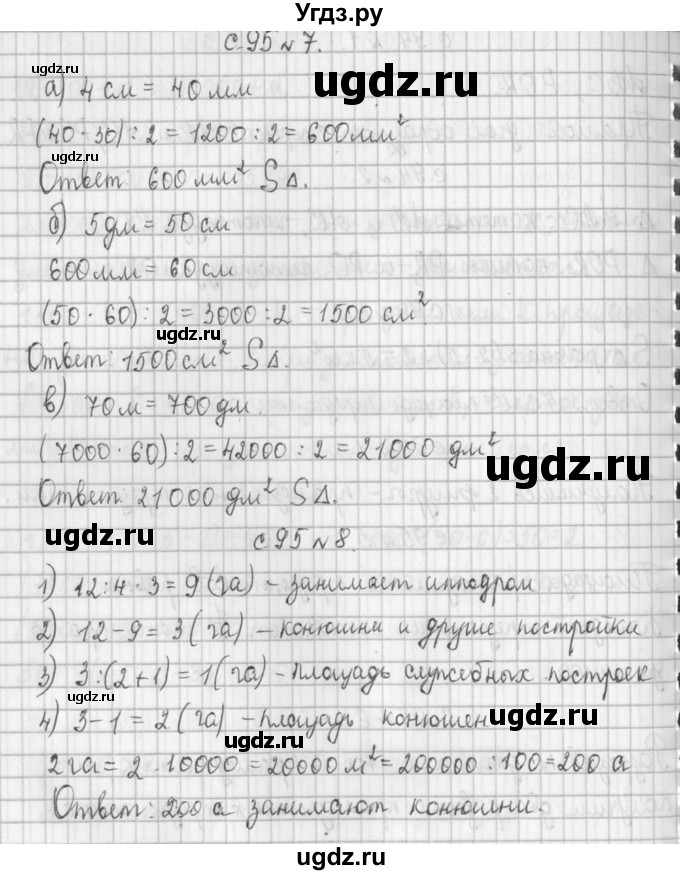 Угдз.ру
с 95 № 7.
а) 4 см = 40 мм
(40 · 30) : 2 = 1200 : 2 = 600 мм²
Ответ: 600 мм² S Δ.
б) 5 дм = 50 см
600 мм = 60 см
(50 · 60) : 2 = 3000 : 2 = 1500 см²
Ответ: 1500 см² S Δ.
в) 70 м = 700 дм.
(7000 · 60) : 2 = 42000 : 2 = 21000 дм²
Ответ: 21000 дм² S Δ.
с 95 № 8.
1) 12 : 4 · 3 = 9 (га) – занимает ипподром
2) 12 – 9 = 3 (га) – конюшни и другие постройки
3) 3 : (2 + 1) = 1 (га) – площадь служебных построек
4) 3 – 1 = 2 (га) – площадь конюшен
2 га = 2 · 10000 = 20000 м² = 200000 : 100 = 200 а
Ответ: 200 а занимают конюшни.
ugdz.ru
ugdz.ru
ugdz.ru
ugdz.ru
ugdz.ru
ugdz.ru
ugdz.ru
ugdz.ru
ugdz.ru
ugdz.ru